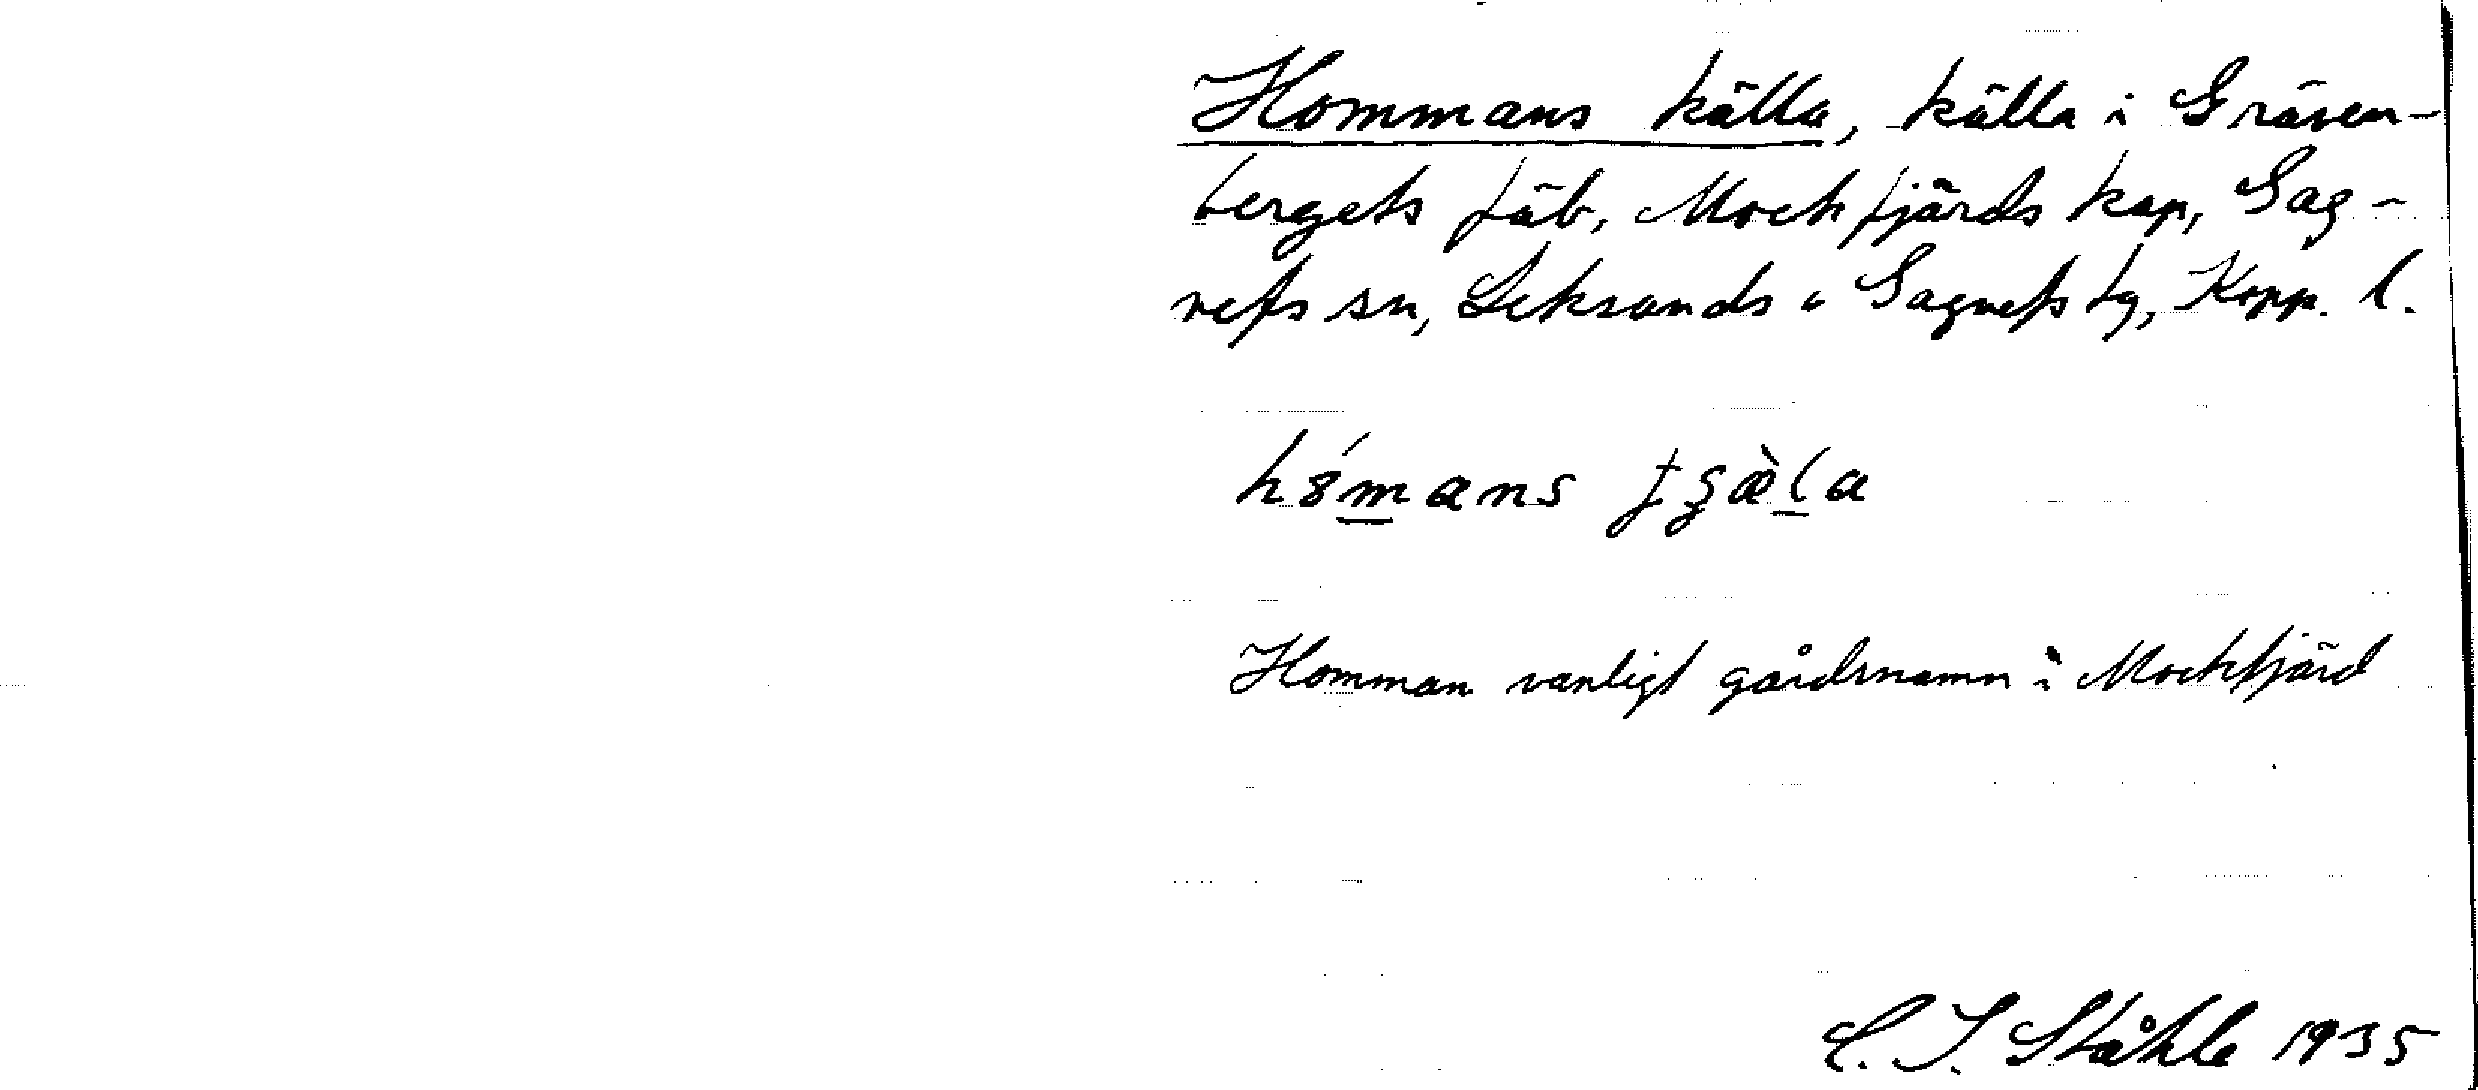 Hommans källa, källa i Gräsen-
bergets fäb, Mockfjärds kap, Gag-
nefs sn, Leksands o Gagnefs tg, Kopp. l.
Homman vanligt gårdsnamn i Mockfjärd
C. I. Ståhle 1935